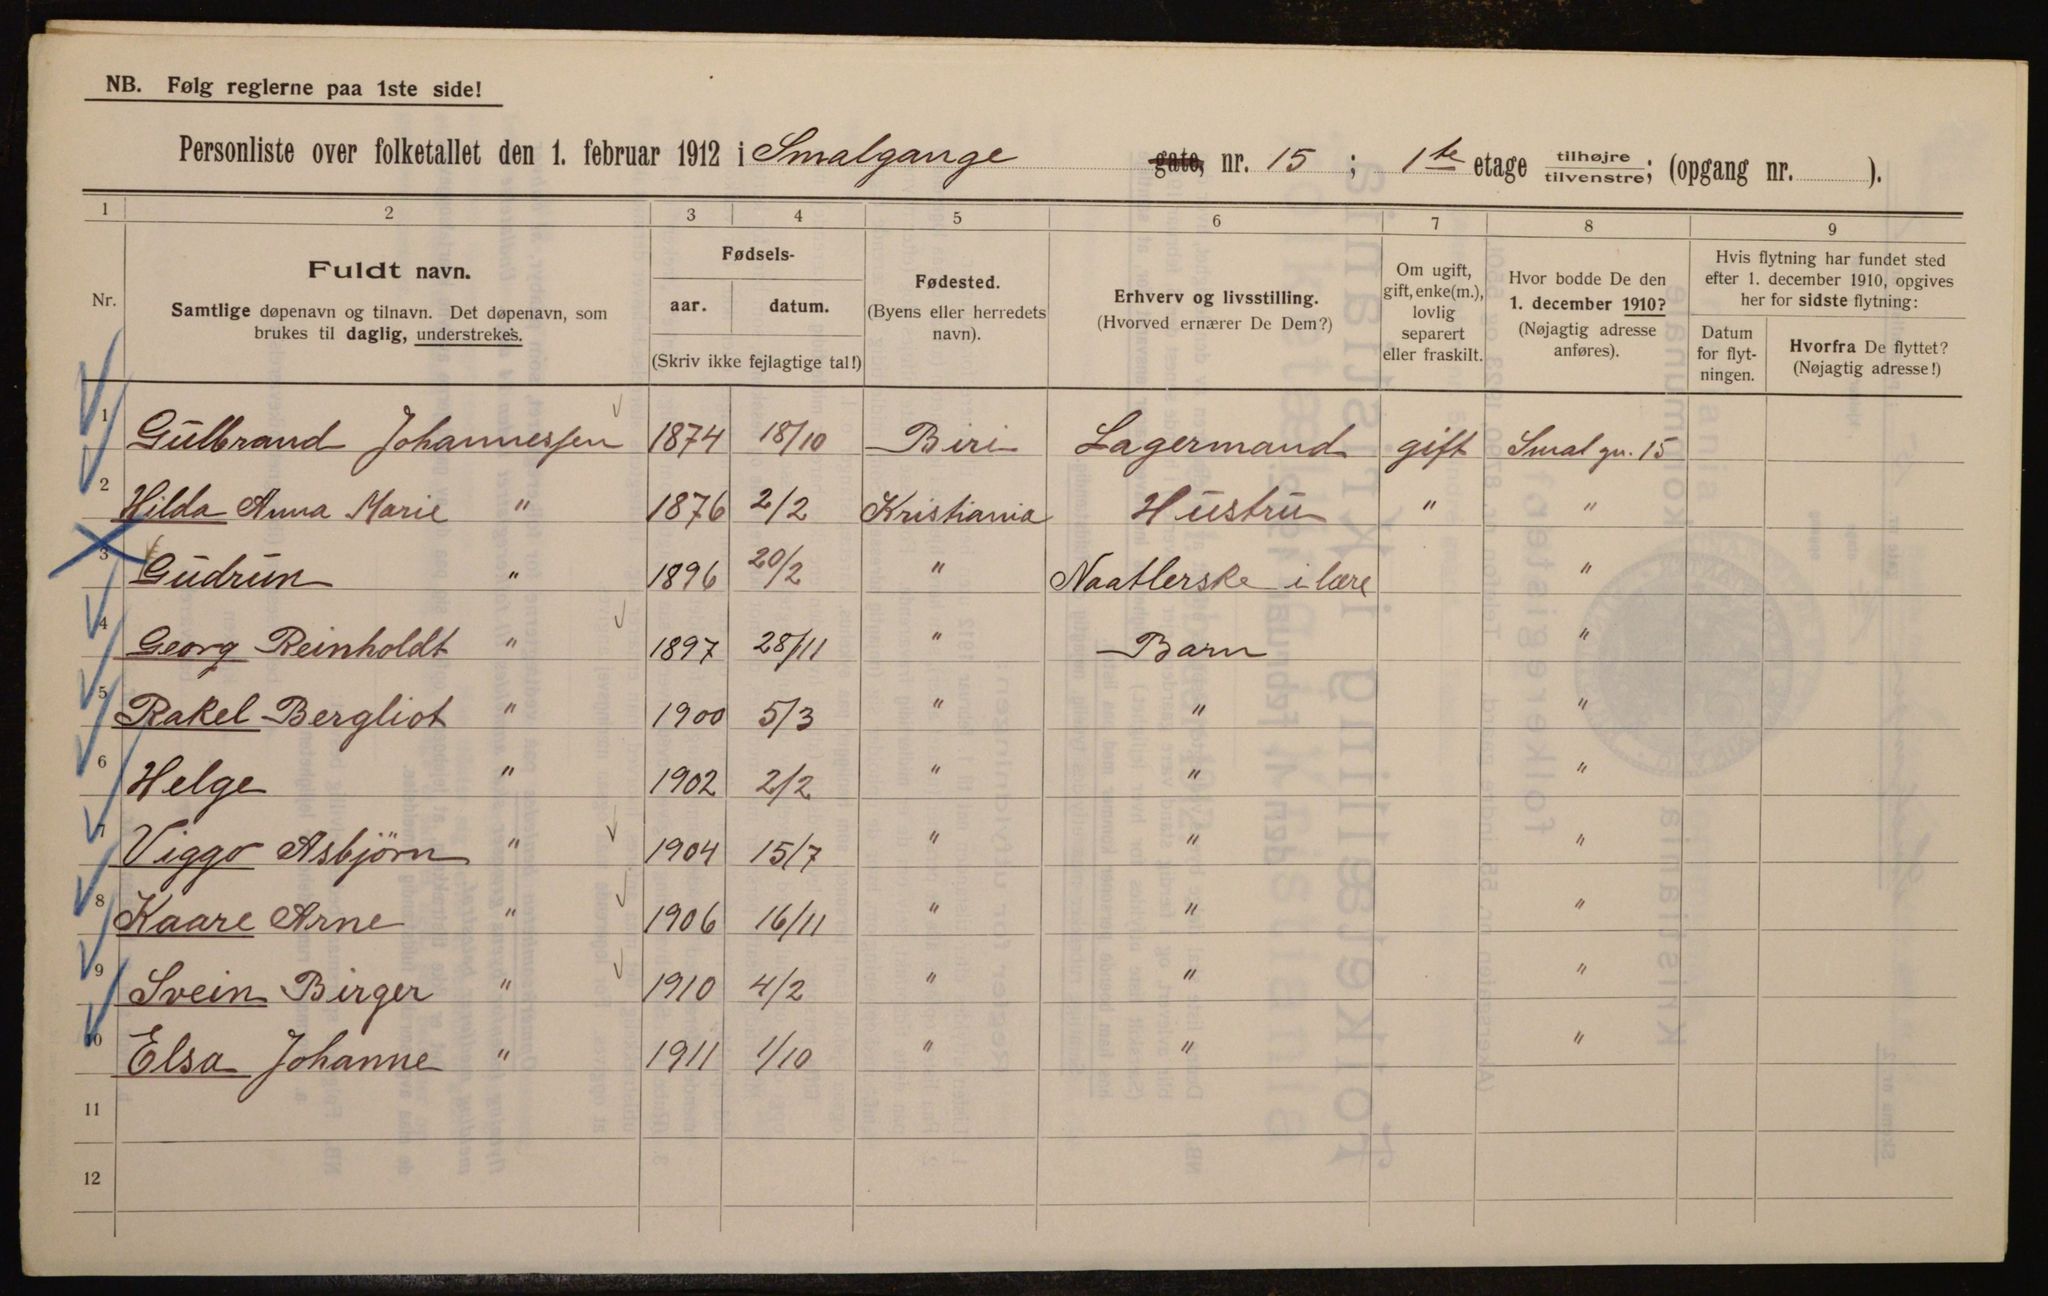 NB. Følg reglerne paa 1ste side!
Personliste over folketallet den 1. februar 1912 i Smalgange gate, nr. 15 ; 1ste etage tilhøjre tilvenstre; (opgang nr. ).
1 2 3 4 5 6 7 8 9
Nr.
Fuldt navn.
Samtlige døpenavn og tilnavn. Det døpenavn, som
brukes til daglig, understrekes.
Fødsels-
aar. datum.
(Skriv ikke fejlagtige tal!)
Fødested.
(Byens eller herredets
navn).
Erhverv og livsstilling.
(Hvorved ernærer De Dem?)
Om ugift,
gift, enke(m.),
lovlig
separert
eller fraskilt.
Hvor bodde De den
1. december 1910?
(Nøjagtig adresse
anføres).
Hvis flytning har fundet sted
efter 1. december 1910, opgives
her for sidste flytning:
Datum
for flyt-
ningen.
Hvorfra De flyttet?
(Nøjagtig adresse!)
1 Gulbrand Johannessen 1874 18/10 Biri Lagermand gift Smalgn. 15
2 Hilda Anna Marie " 1876 2/2 Kristiania Hustru " "
3 Gudrun " 1896 20/2 " Naatlerske i lære "
4 Georg Reinholdt " 1897 28/11 " Barn "
5 Rakel Bergliot " 1900 5/3 " " "
6 Helge " 1902 2/2 " " "
7 Viggo Asbjörn " 1904 15/7 " " "
8 Kaare Arne " 1906 16/11 " " "
9 Svein Birger " 1910 4/2 " " "
10 Elsa Johanne " 1911 1/10 " " "
11
12